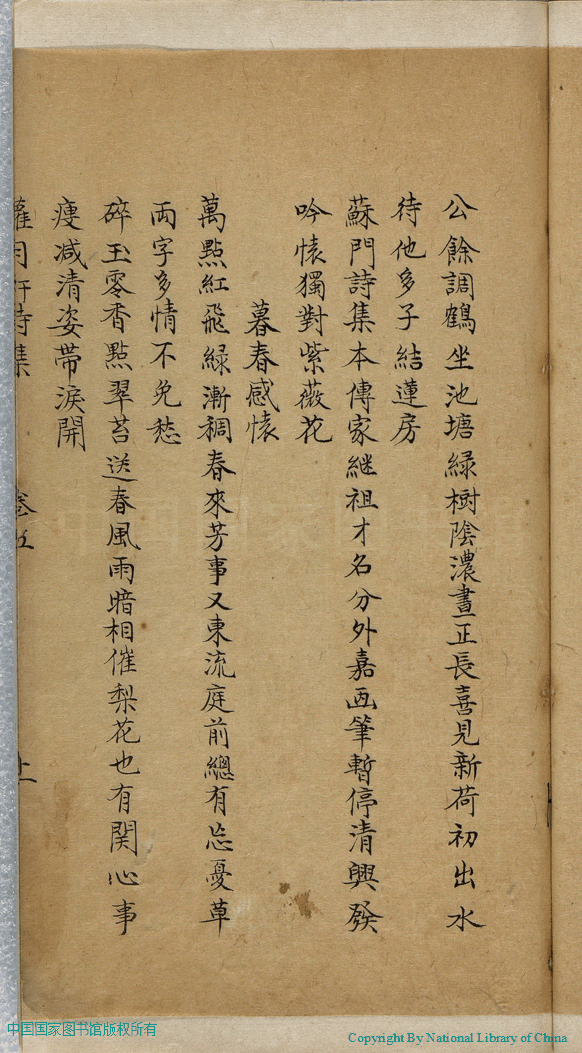 公餘調鶴坐池塘綠樹陰濃晝正長喜見新荷初出水
待他多子結蓮房
蘇門詩集本傳家継祖才名分外嘉画筆暫停清興發
吟懐獨對紫薇花
暮春感懐
萬點紅飛緑漸稠春來芳事又東流庭前總有忘憂草
兩字多情不免愁
碎玉零香點翠苔送春風雨暗相催梨花也有関心事
痩减清姿帶淚開
月軒詩集 卷五
中国国家图书馆版权所有
Copyright By National Library of China